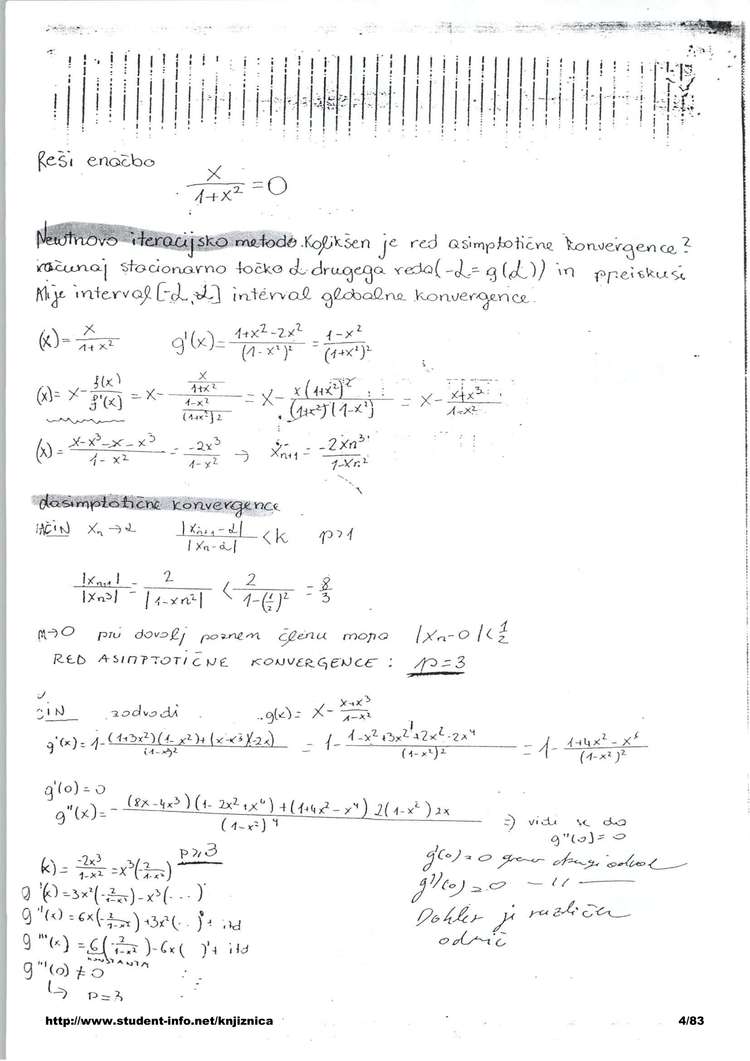 Reši enačbo
x/(1+x²) = 0
Newtnovo iteracijsko metodo. Kolikšen je red asimptotične konvergence?
računaj stacionarno točko α drugega reda (-α = g(α)) in preiskusi
je interval [-α, α] interval globalne konvergence.
(x) = x/(1+x²)   g'(x) = (1+x²-2x²)/(1-x²)² = (1-x²)/(1+x²)²
(x) = x - f(x)/f'(x) = x - (x/(1+x²))/((1-x²)/(1+x²)²) = x - x(1+x²)²/((1+x²)(1-x²)) = x - (x+x³)/(1-x²)
(x) = (x-x³-x-x³)/(1-x²) = -2x³/(1-x²) → xₙ₊₁ = -2xₙ³/(1-xₙ²)
dasimptotične konvergence
AČIN xₙ→α |xₙ₊₁-α|/|xₙ-α| < k p>1
|xₙ₊₁|/|xₙ³| = 2/|1-xₙ²| < 2/(1-(1/2)²) = 8/3
→0 pri dovolj poznem členu mora |xₙ-0| < 1/2
RED ASIMPTOTIČNE KONVERGENCE: p=3
ČIN zodvodi g(x) = x - (x+x³)/(1-x²)
g'(x) = 1 - ((1+3x²)(1-x²)+(x-x³)(-2x))/(1-x²)² = 1 - (1-x²+3x²+2x²-2x⁴)/(1-x²)² = 1 - (1+4x²-x⁶)/(1-x²)²
g'(0) = 0
g''(x) = - ((8x-4x³)(1-2x²+x⁴)+(1+4x²-x⁴)2(1-x²)2x)/(1-x²)⁴ ⇒ vidi se da
g''(0) = 0
p≥3
(x) = -2x³/(1-x²) = x³(-2/(1-x²))
g'(0) = 0 drugi odvod
g'(x) = 3x²(-2/(1-x²)) - x³(...)'
g''(0) = 0 —11—
g''(x) = 6x(-2/(1-x²)) + 3x²(..)' + itd
Dokler je različen
g'''(x) = 6(-2/(1-x²)) - 6x( )' + itd
KONSTANTA
g'''(0) ≠ 0
↳ p=3
http://www.student-info.net/knjiznica
4/83